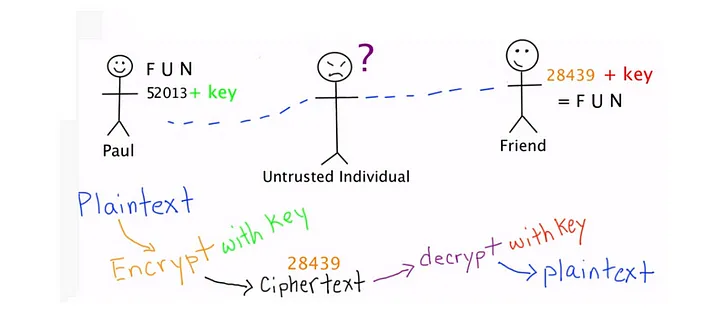 F U N
52013 + key
Paul
?
Untrusted Individual
28439 + key
= F U N
Friend
Plaintext
Encrypt with key
28439
Ciphertext
decrypt with key
plaintext